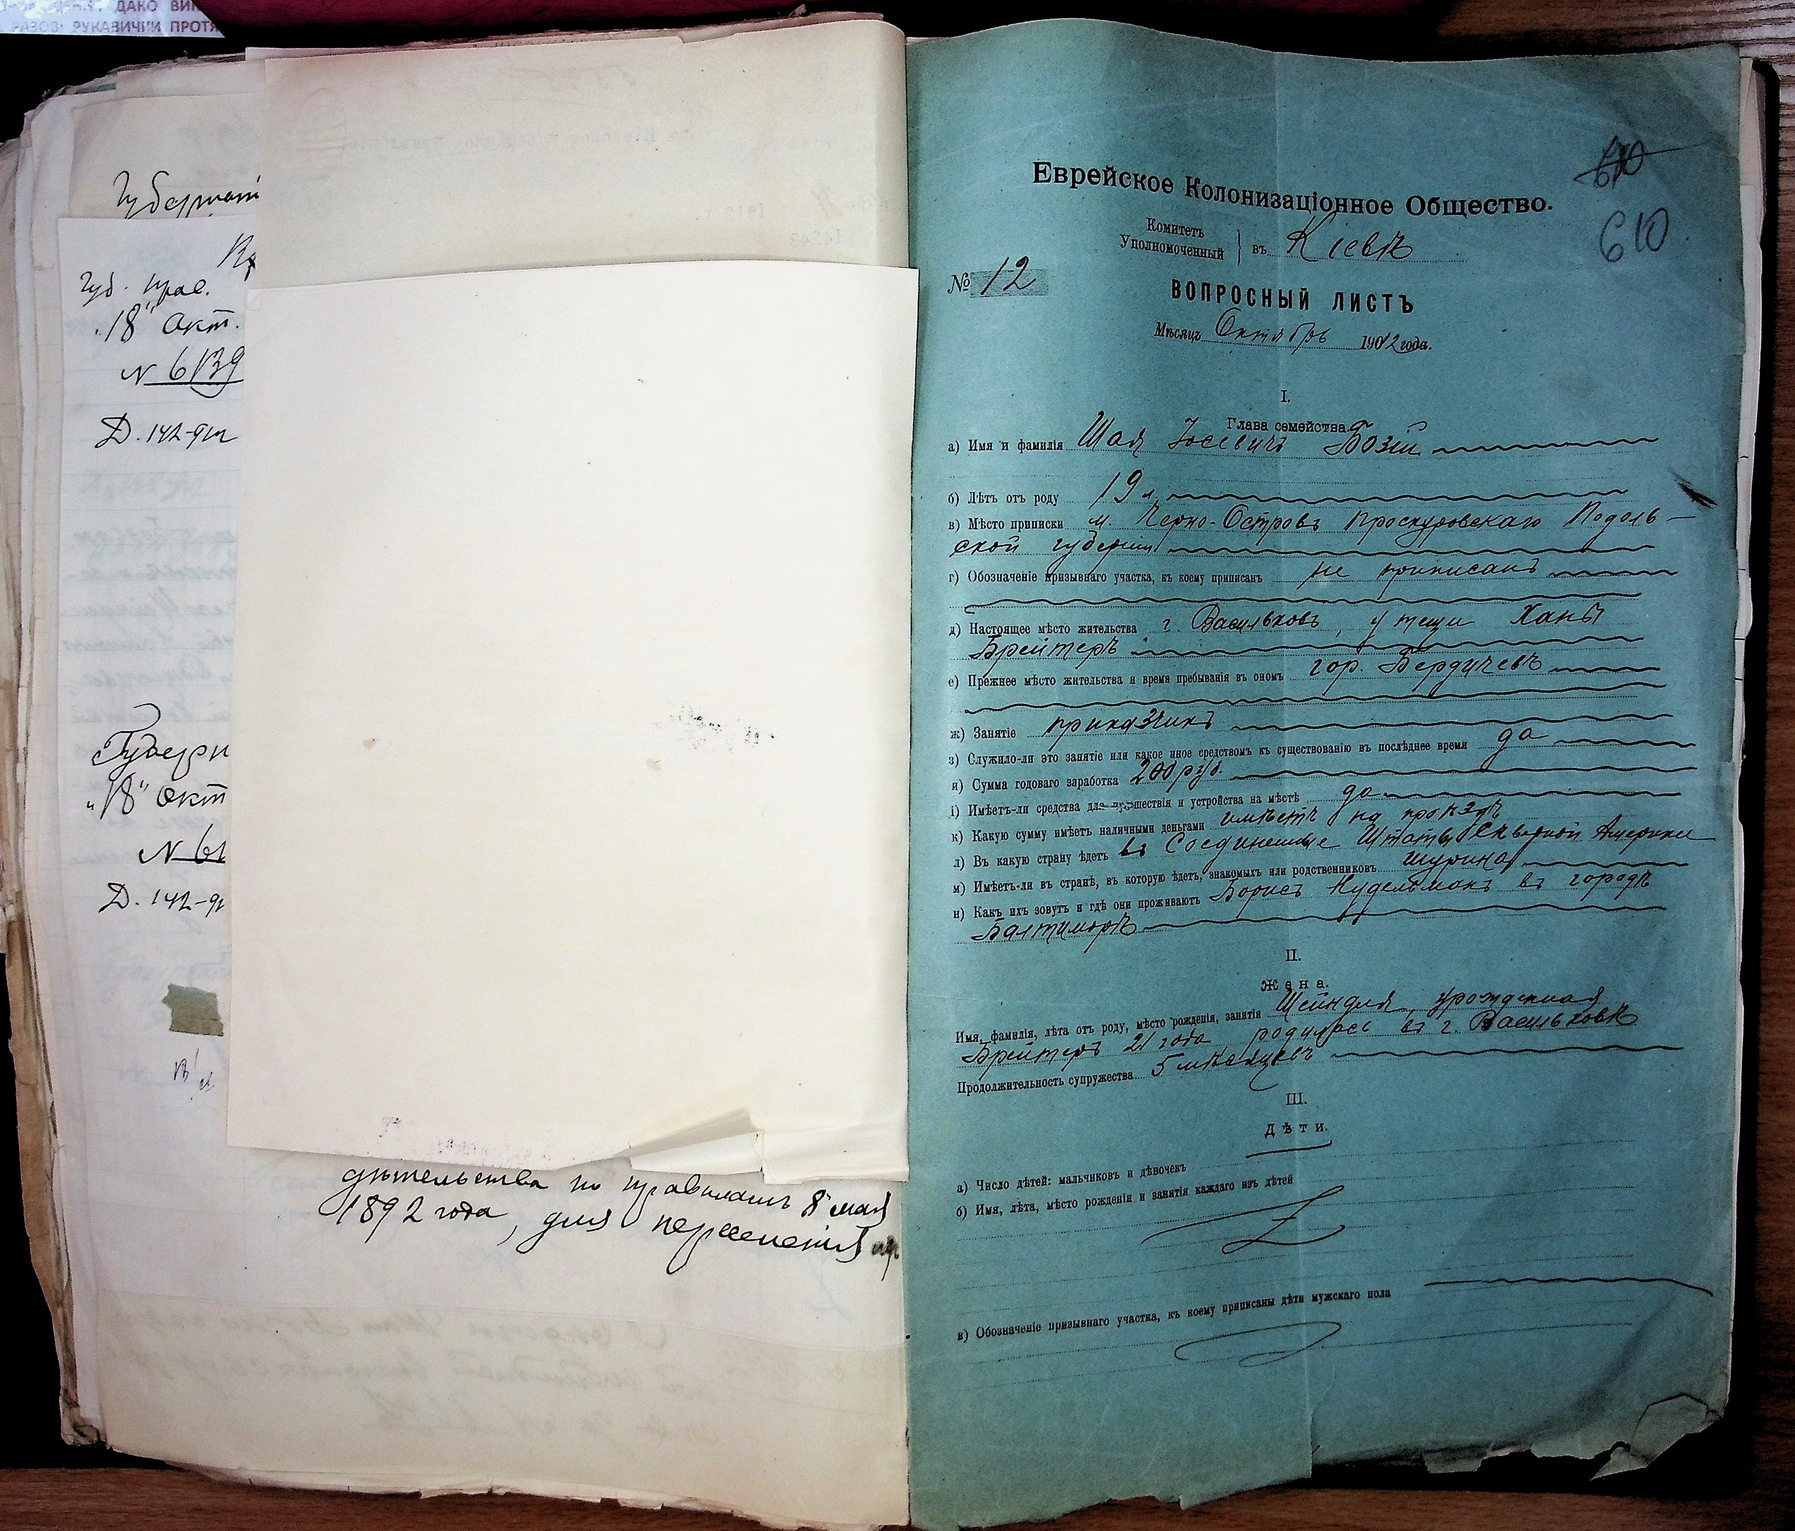 ДАКО ВИК
РАЗОВ: РУКАВИЧКИ ПРОТЯ
Губернат
Губ. прав.
"18" окт.
N 6139
Д. 142-912
Губерн
"18" окт
N 61
Д. 142-91
дѣтельства по правиламъ 8 мая
1892 года, для переселенія
610
610
Еврейское Колонизаціонное Общество.
Комитетъ
Уполномоченный } въ Кіевѣ
№ 12
ВОПРОСНЫЙ ЛИСТЪ
Мѣсяцъ Октябрь 1912 года.
I.
Глава семейства.
а) Имя и фамилія Шая Іосевичъ Бозій
б) Лѣтъ отъ роду 19 л.
в) Мѣсто приписки м. Черно-Островъ Проскуровскаго Подоль-
ской губерніи
г) Обозначеніе призывнаго участка, къ коему приписанъ не приписанъ
д) Настоящее мѣсто жительства г. Васильковъ, у тещи Ханы
Брейтеръ
е) Прежнее мѣсто жительства и время пребыванія въ ономъ гор. Бердичевъ
ж) Занятіе приказчикъ
з) Служило-ли это занятіе или какое иное средствомъ къ существованію въ послѣднее время да
и) Сумма годоваго заработка 200 руб.
і) Имѣетъ-ли средства для путешествія и устройства на мѣстѣ да
к) Какую сумму имѣетъ наличными деньгами имѣетъ на проѣздъ
л) Въ какую страну ѣдетъ въ Соединенные Штаты Сѣверной Америки
м) Имѣетъ-ли въ странѣ, въ которую ѣдетъ, знакомыхъ или родственниковъ шурина
н) Какъ ихъ зовутъ и гдѣ они проживаютъ Борисъ Нудельманъ въ городѣ
Балтиморѣ
II.
Жена.
Имя, фамилія, лѣта отъ роду, мѣсто рожденія, занятія Шейндля, урожденная
Брейтеръ 21 года родилась въ г. Васильковѣ
Продолжительность супружества 5 мѣсяцевъ
III.
Дѣти.
а) Число дѣтей: мальчиковъ и дѣвочекъ
б) Имя, лѣта, мѣсто рожденія и занятія каждаго изъ дѣтей
в) Обозначеніе призывнаго участка, къ коему приписаны дѣти мужскаго пола